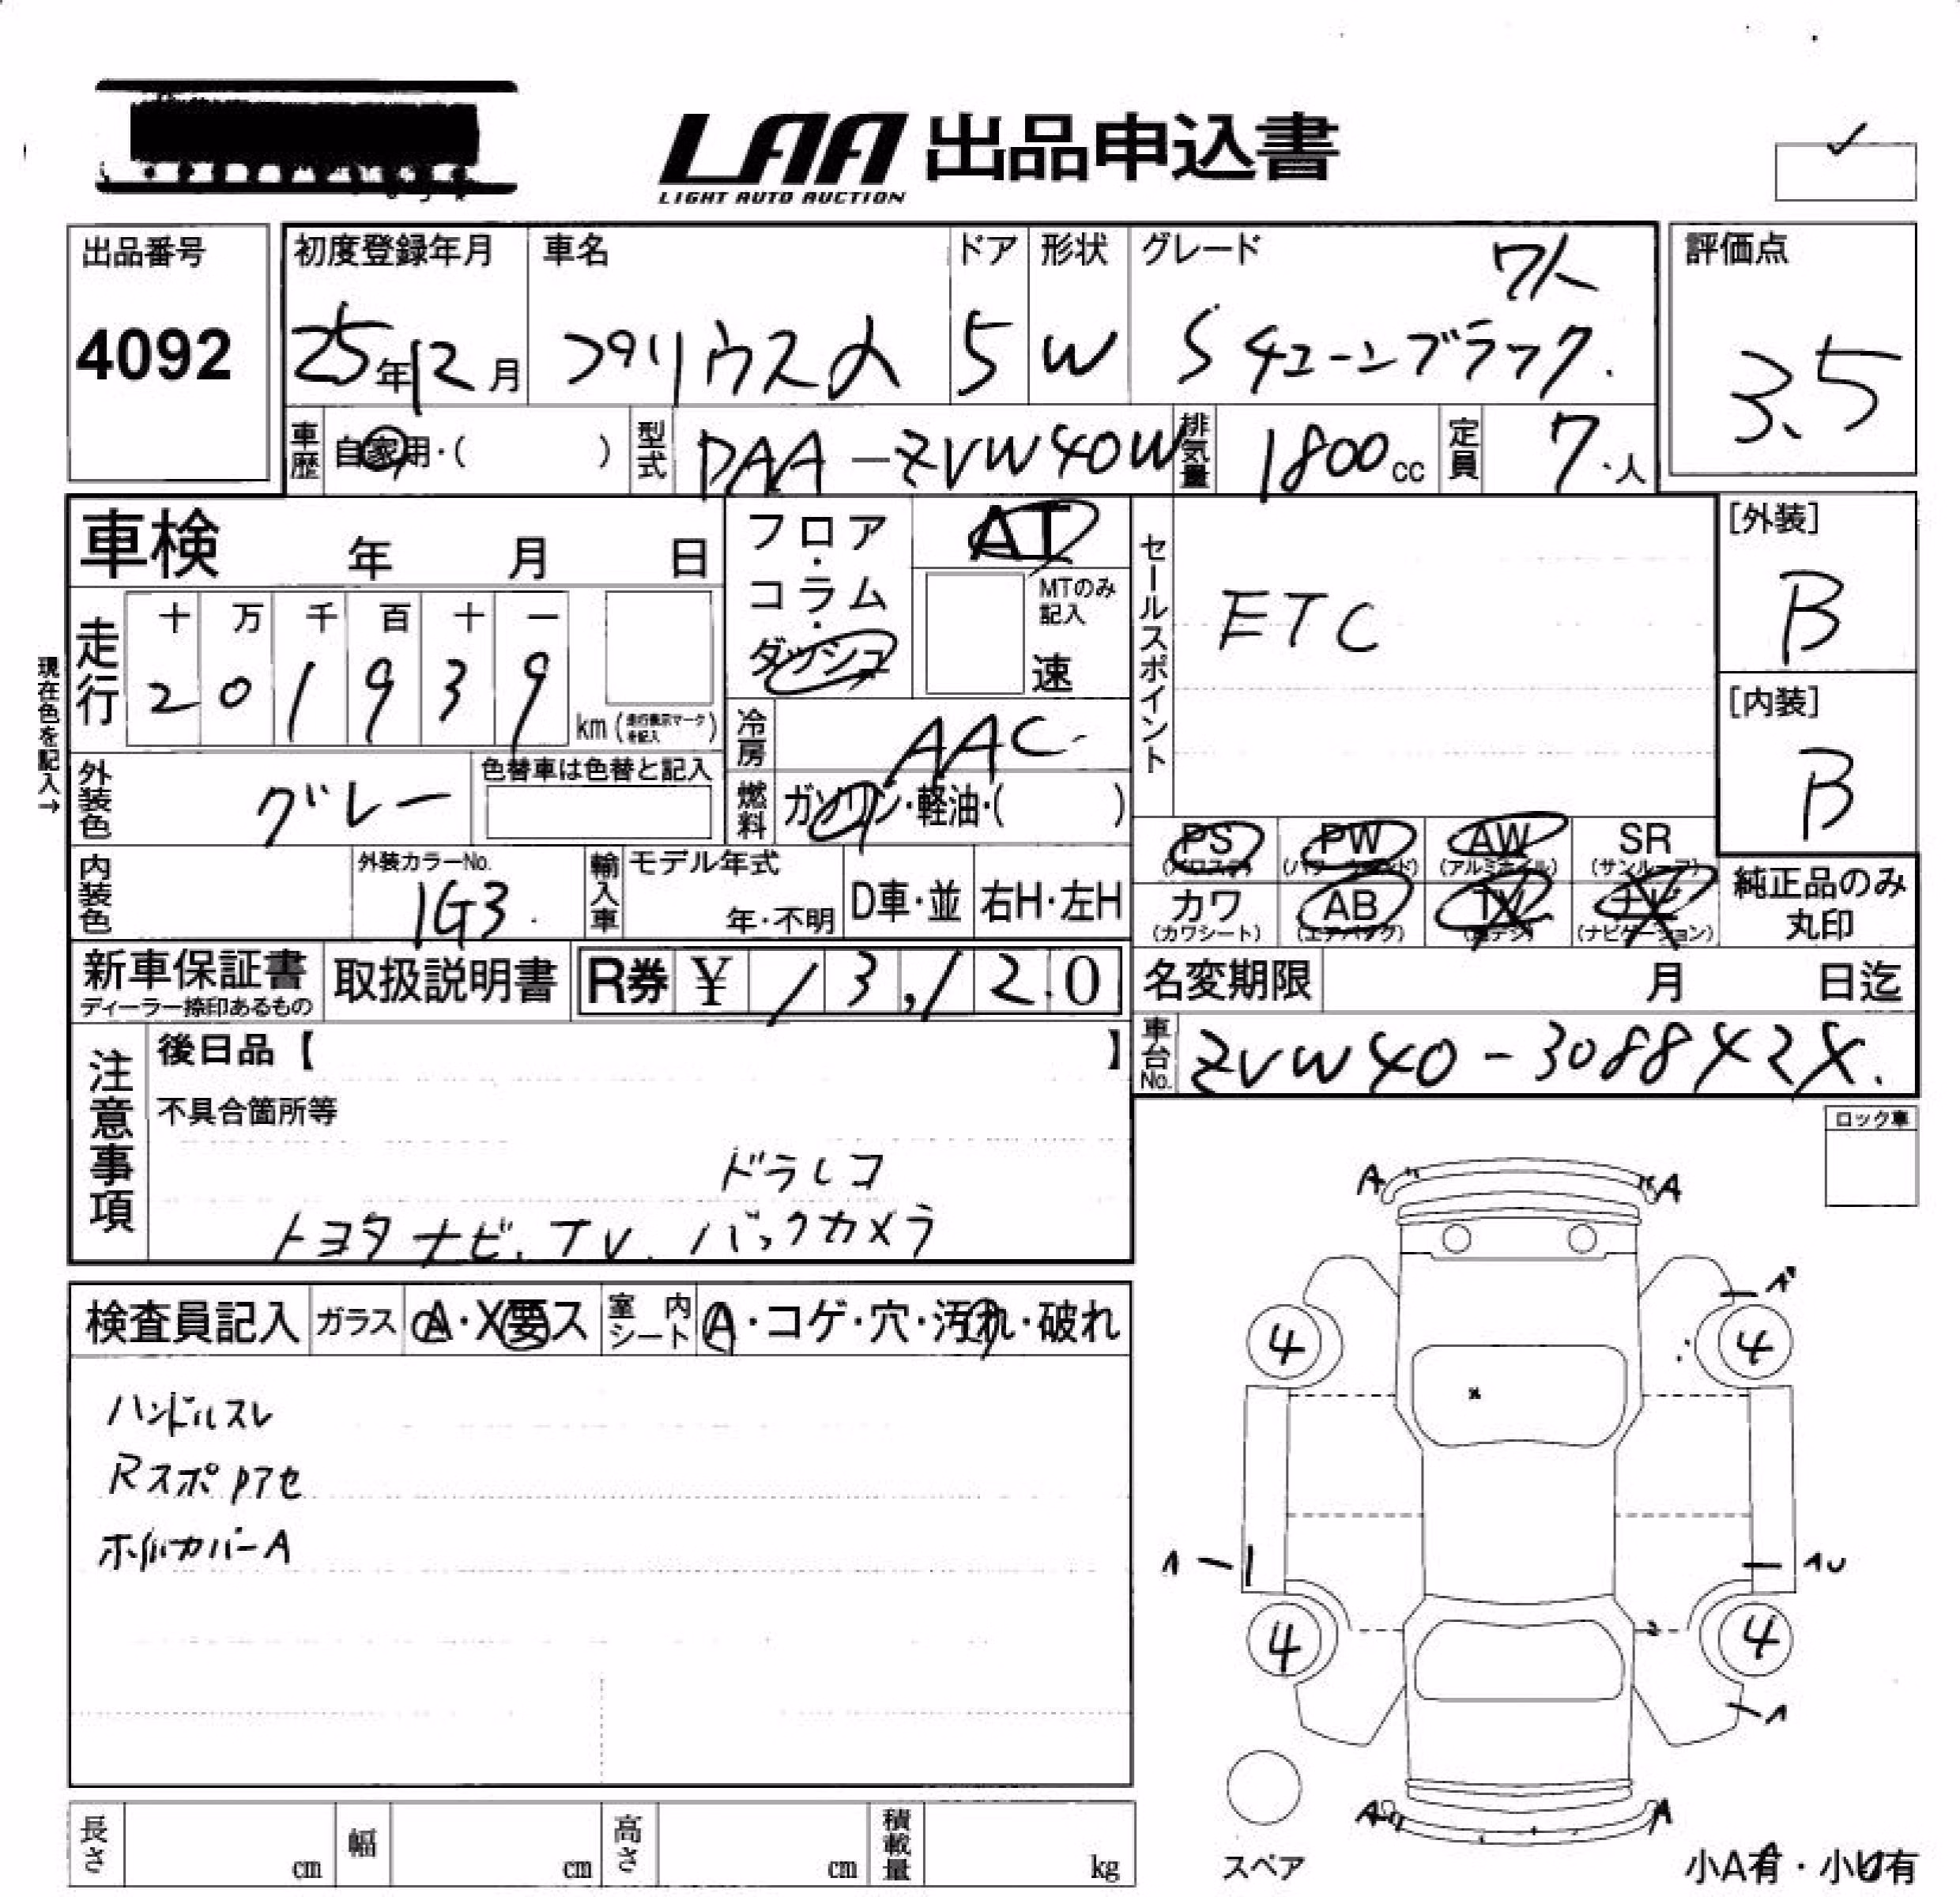 LAA 出品申込書
LIGHT AUTO AUCTION
出品番号
4092
初度登録年月
25年12月
車名
プリウスα
ドア
5
形状
W
グレード
7人
Sチューンブラック.
評価点
3.5
車歴
自家用・( )
型式
DAA-ZVW40W
排気量
1800cc
定員
7・人
車検 年 月 日
フロア・コラム・ダッシュ
AT
MTのみ記入
速
セールスポイント
ETC
[外装]
B
[内装]
B
現在色を記入→
走行
十 万 千 百 十 一
2 0 1 9 3 9
km (走行表示マークを記入)
冷房
AAC
燃料
ガソリン・軽油・( )
外装色
グレー
色替車は色替と記入
PS
(パワステ)
PW
(パワーウィンド)
AW
(アルミホイル)
SR
(サンルーフ)
カワ
(カワシート)
AB
(エアバッグ)
TV
(ナビゲーション)
純正品のみ
丸印
内装色
外装カラーNo.
1G3.
輸入車
モデル年式
年・不明
D車・並
右H・左H
新車保証書
ディーラー捺印あるもの
取扱説明書
R券 ¥ 13,120
名変期限 月 日迄
車台No.
ZVW40-308842X.
注意事項
後日品【 】
不具合箇所等
ドラレコ
トヨタナビ.TV.バックカメラ
ロック車
検査員記入
ガラス
A・X要ス
室内シート
A・コゲ・穴・汚れ・破れ
ハンドルスレ
Rスポpアセ
ホイルカバーA
A A
4 4
4 4
A A
スペア
小A有・小U有
長さ cm
幅 cm
高さ cm
積載量 kg